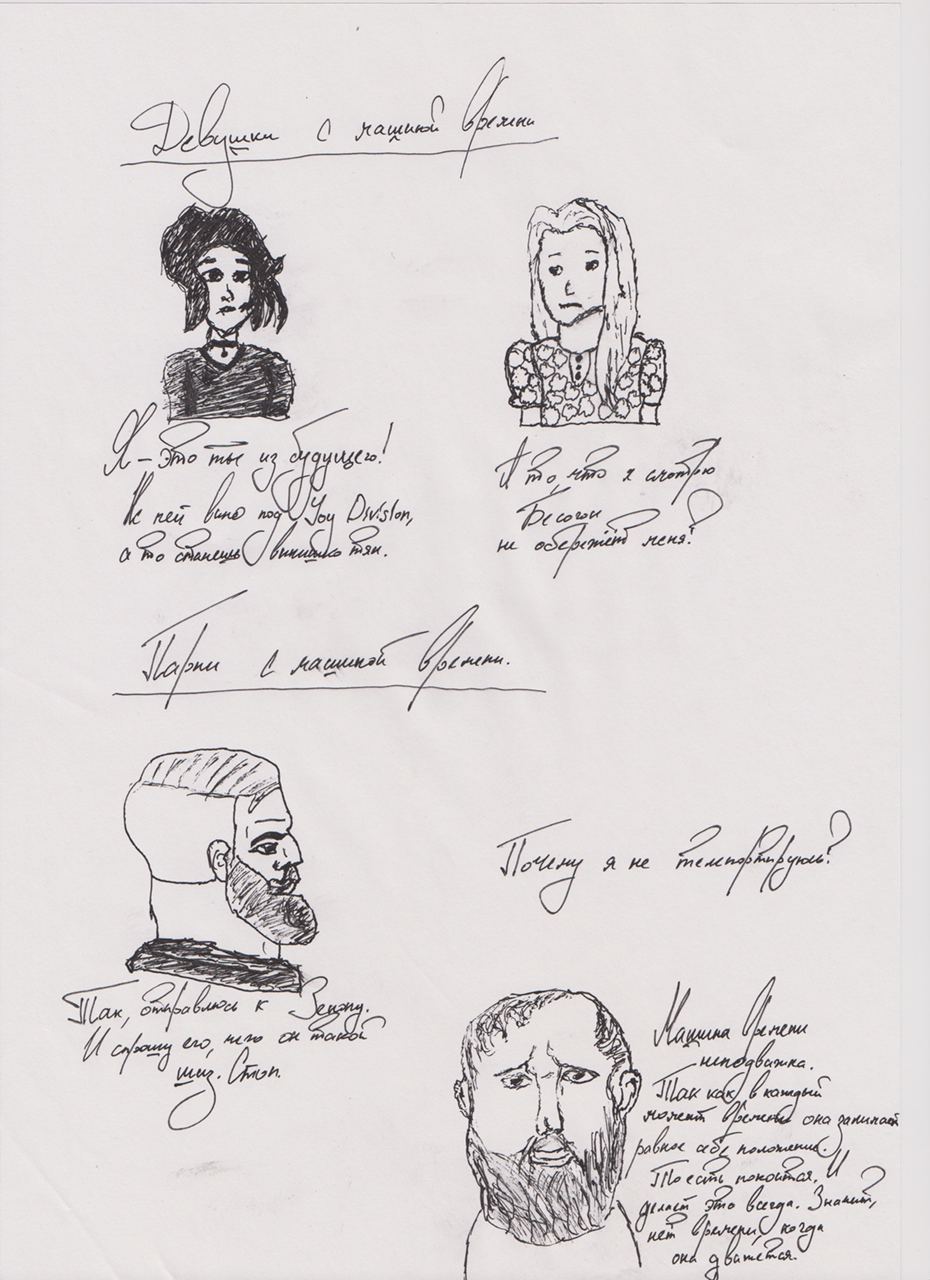 Девушки с машиной времени
Я – это ты из будущего!
Не пей вино под Joy Division,
а то станешь винишко тян.
А то, что я смотрю
Бесогон
не обережёт меня?
Парни с машиной времени.
Так, отправлюсь к Зенону.
И спрошу его, чего он такой
шиз. Стоп.
Почему я не телепортируюсь?
Машина времени
неподвижна.
Так как в каждый
момент времени она занимает
равное себе положение.
То есть покоится. И
делает это всегда. Значит,
нет времени, когда
она движется.